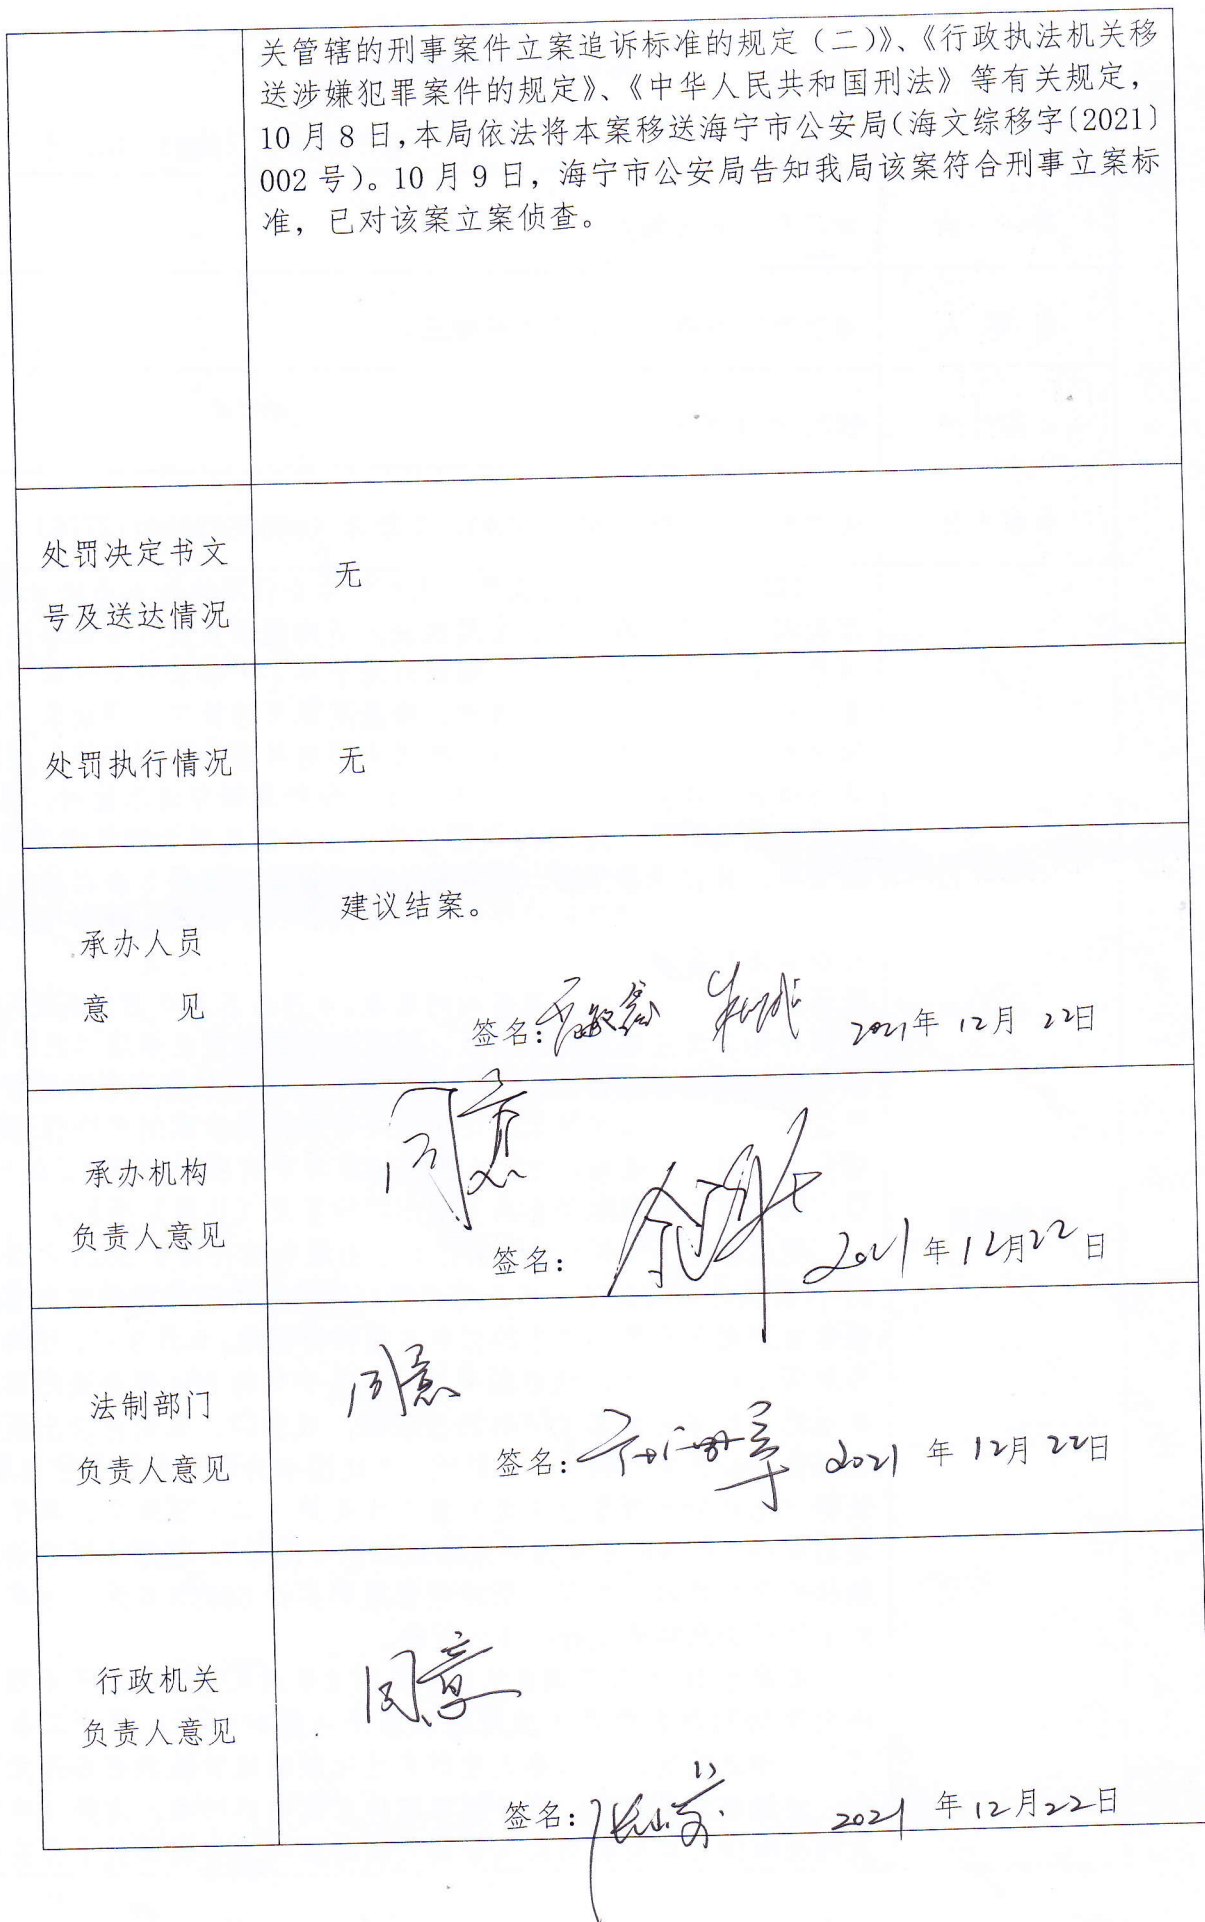 关管辖的刑事案件立案追诉标准的规定（二）》、《行政执法机关移
送涉嫌犯罪案件的规定》、《中华人民共和国刑法》等有关规定，
10月8日，本局依法将本案移送海宁市公安局（海文综移字〔2021〕
002号）。10月9日，海宁市公安局告知我局该案符合刑事立案标
准，已对该案立案侦查。
处罚决定书文
号及送达情况
无
处罚执行情况
无
承办人员
意 见
建议结案。
签名： 2021年12月22日
承办机构
负责人意见
同意
签名： 2021年12月22日
法制部门
负责人意见
同意
签名： 2021年12月22日
行政机关
负责人意见
同意
签名： 2021年12月22日